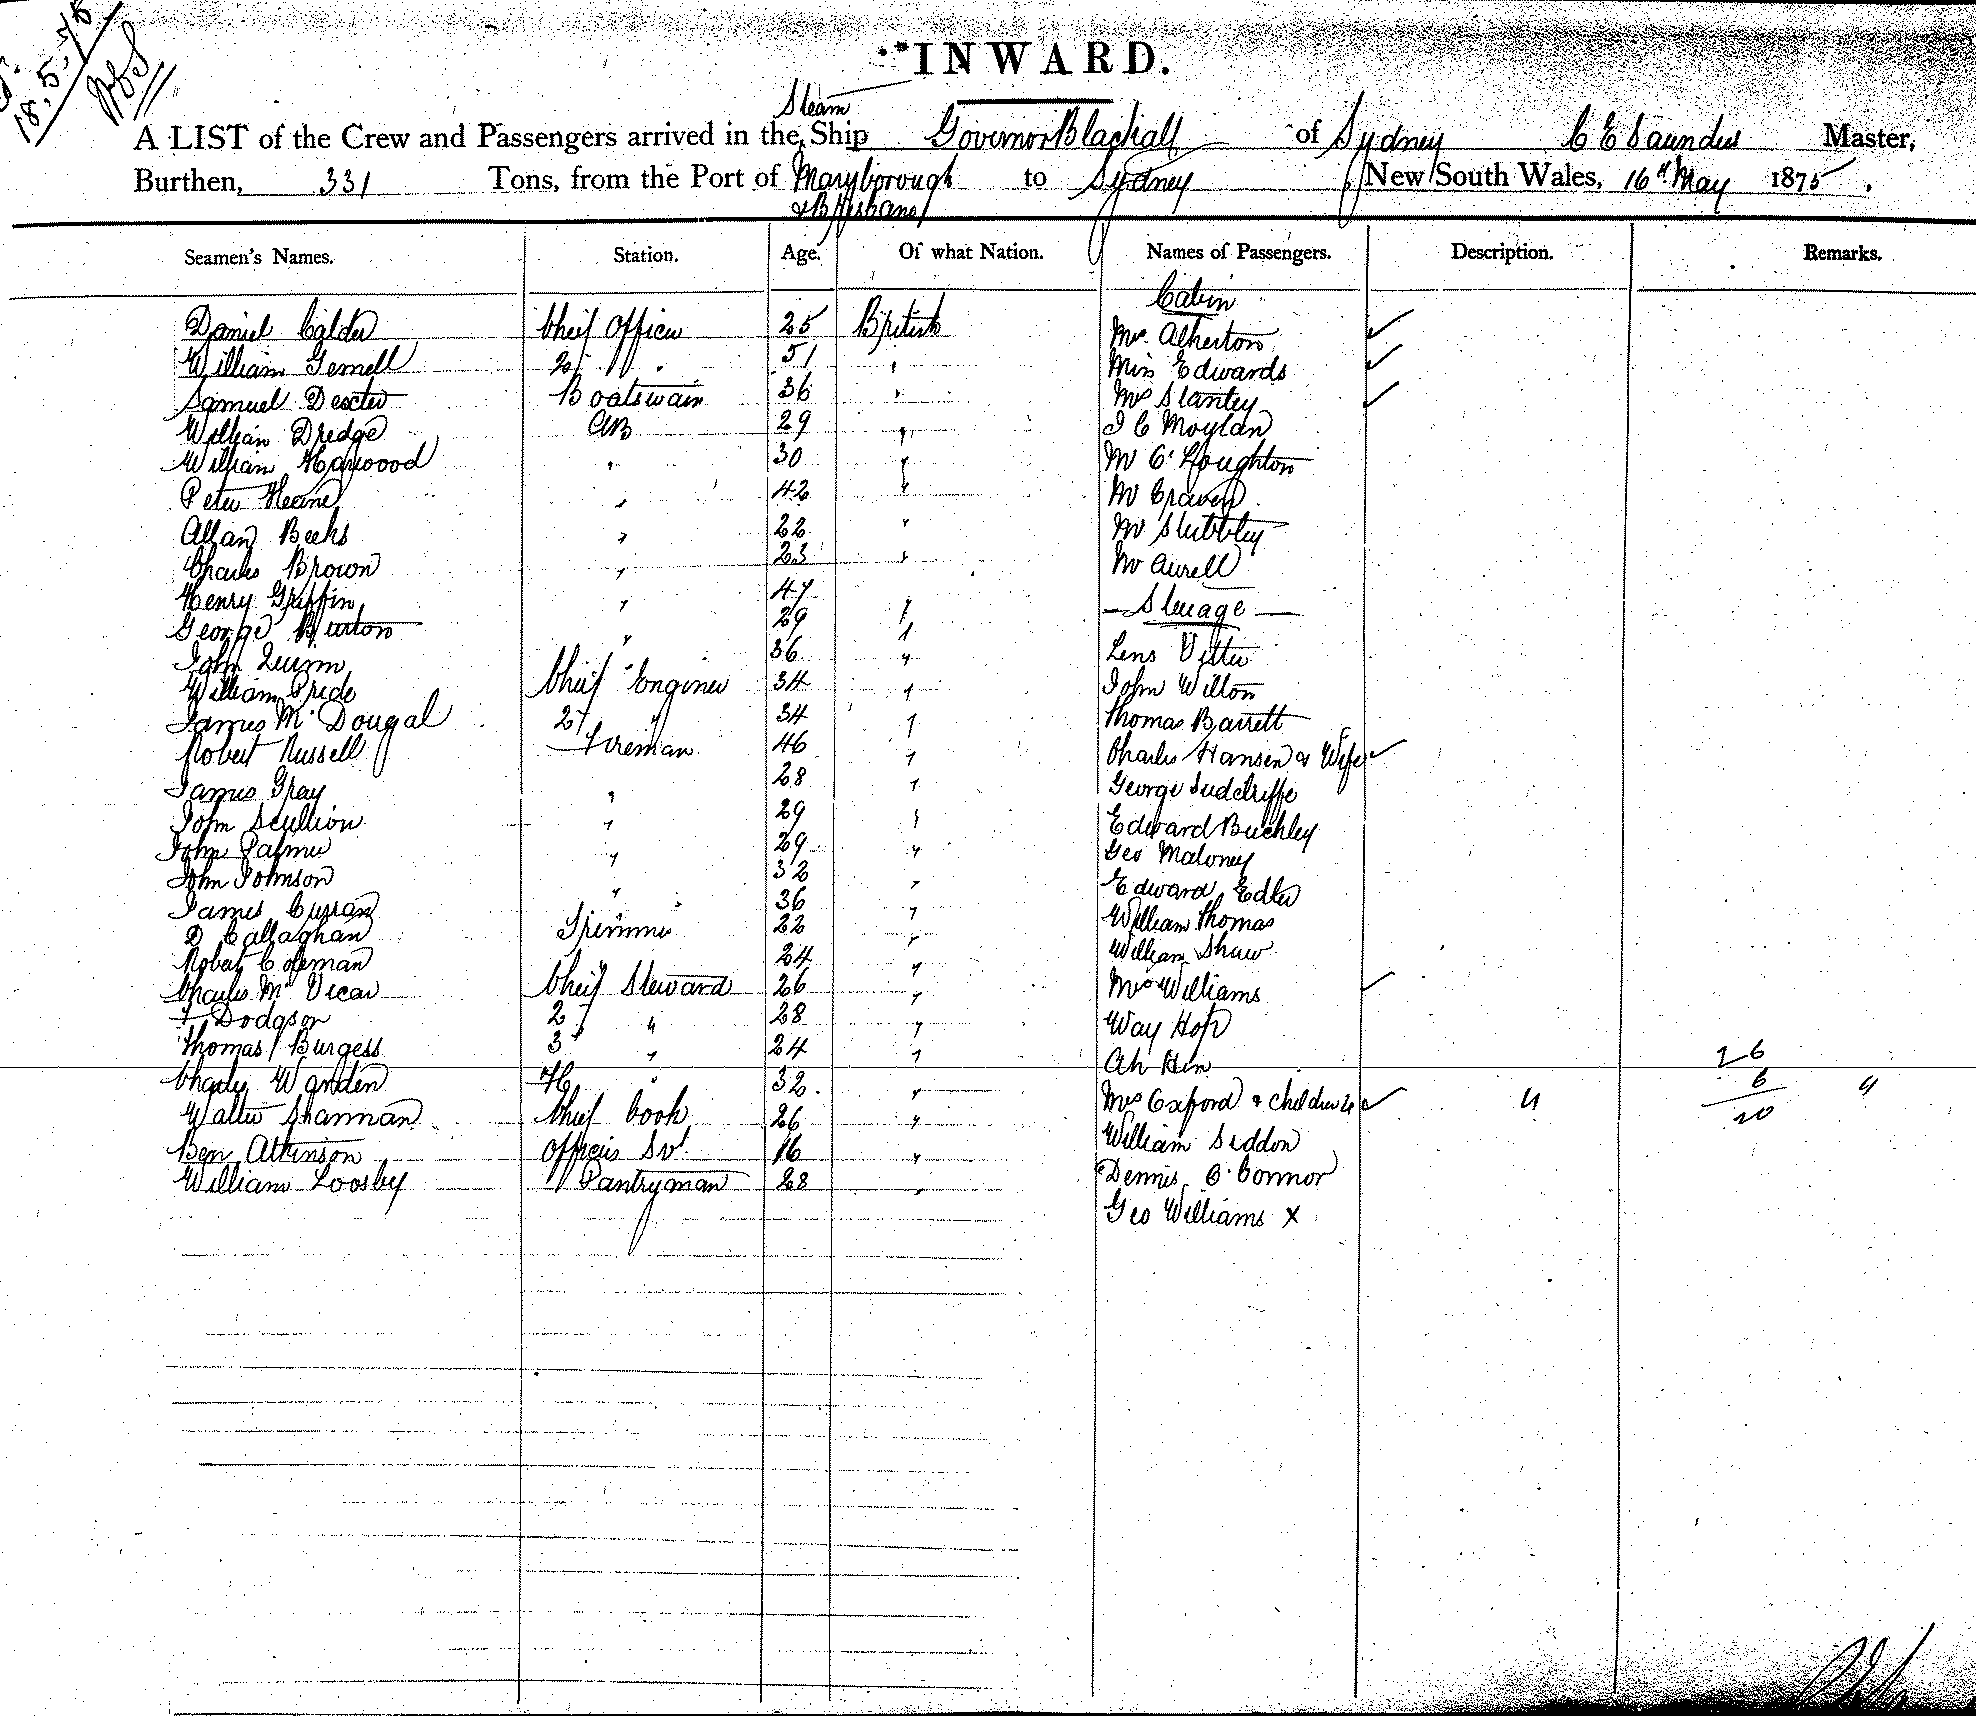 18.5.75
INWARD.
Steam
A LIST of the Crew and Passengers arrived in the Ship Governor Blackall of Sydney C E Saunders Master,
Burthen, 331 Tons, from the Port of Maryborough to Sydney New South Wales, 16th May 1875.
& Brisbane
Seamen's Names. Station. Age. Of what Nation. Names of Passengers. Description. Remarks.
Cabin
Daniel Calder Cheif Officer 25 British Mrs Atherton ✓
William Gemell 2d " 51 " Miss Edwards ✓
Samuel Dexter Boatswain 36 " Mrs Stanley ✓
William Dredge AB 29 " J C Moylan
William Harwood " 30 " Mr O'Houghton
Peter Hearne " 42 " Mr Craven
Allan Beeks " 22 " Mr Stubbley
Charles Brown " 23 " Mr Aurell
Henry Griffin " 47 " Steerage
George Burton " 29 "
John Quinn " 36 " Lens Vetter
William Pride Cheif Enginer 34 " John Wilton
James McDougal 2d " 34 " Thomas Barrett
Robert Russell Fireman 46 " Charles Hansen & Wife ✓
James Gray " 28 " George Sudcliffe
John Scullion " 29 " Edward Buckley
John Palmer " 29 " Geo Maloney
John Johnson " 32 " Edward Edler
James Curran " 36 " William Thomas
D Callaghan Trimmer 22 " William Shaw
Robert Coleman " 24 " Mrs Williams ✓
Charles McVicar Cheif Steward 26 " Way Hop
F Dodgson 2d " 28 " Ah Hin
Thomas Burgess 3d " 24 " Mrs Oxford & Children 4 ✓ 4 26
Charley Wanden 4th " 32 " William Seddon 6 4
Walter Shannan Cheif Cook 26 " Dennis O'Connor 20
Ben Atkinson Officers Svt 16 " Geo Williams x
William Loosby Pantryman 28 "